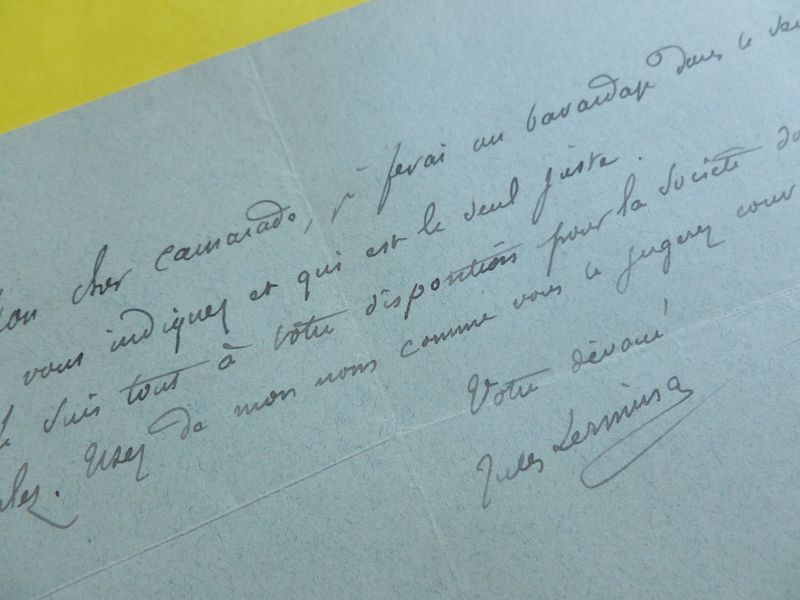 Mon cher Camarade, je ferai un bavardage dans le sens
vous indiquez et qui est le seul juste.
Je suis tout à votre disposition pour la société do
ulez. Usez de mon nom comme vous le jugerez conv
Votre dévoué
Jules Lermina